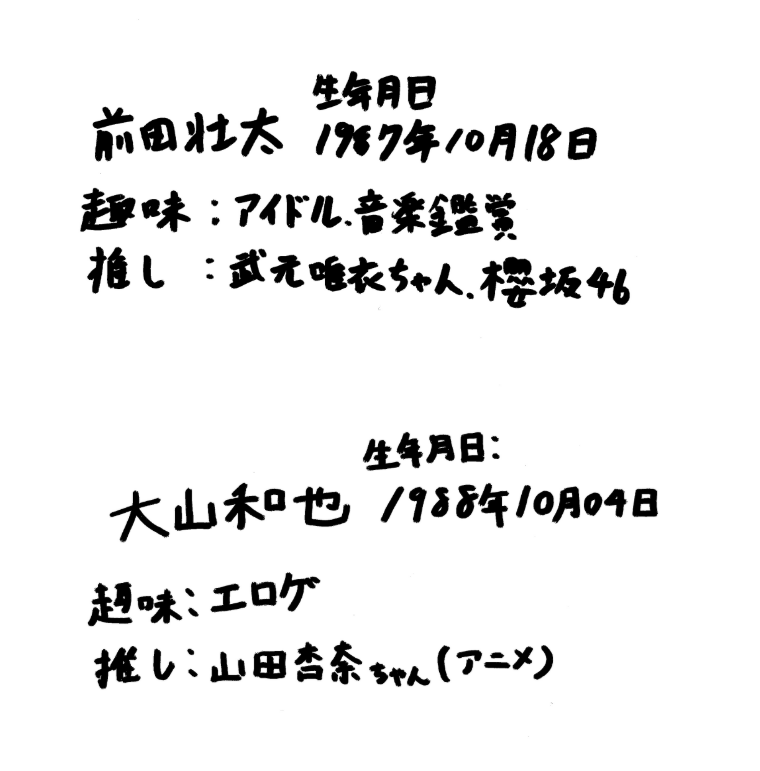 生年月日
前田壮太 1987年10月18日
趣味:アイドル、音楽鑑賞
推し :武元唯衣ちゃん、櫻坂46
生年月日:
大山和也 1988年10月04日
趣味:エロゲ
推し:山田杏奈ちゃん(アニメ)